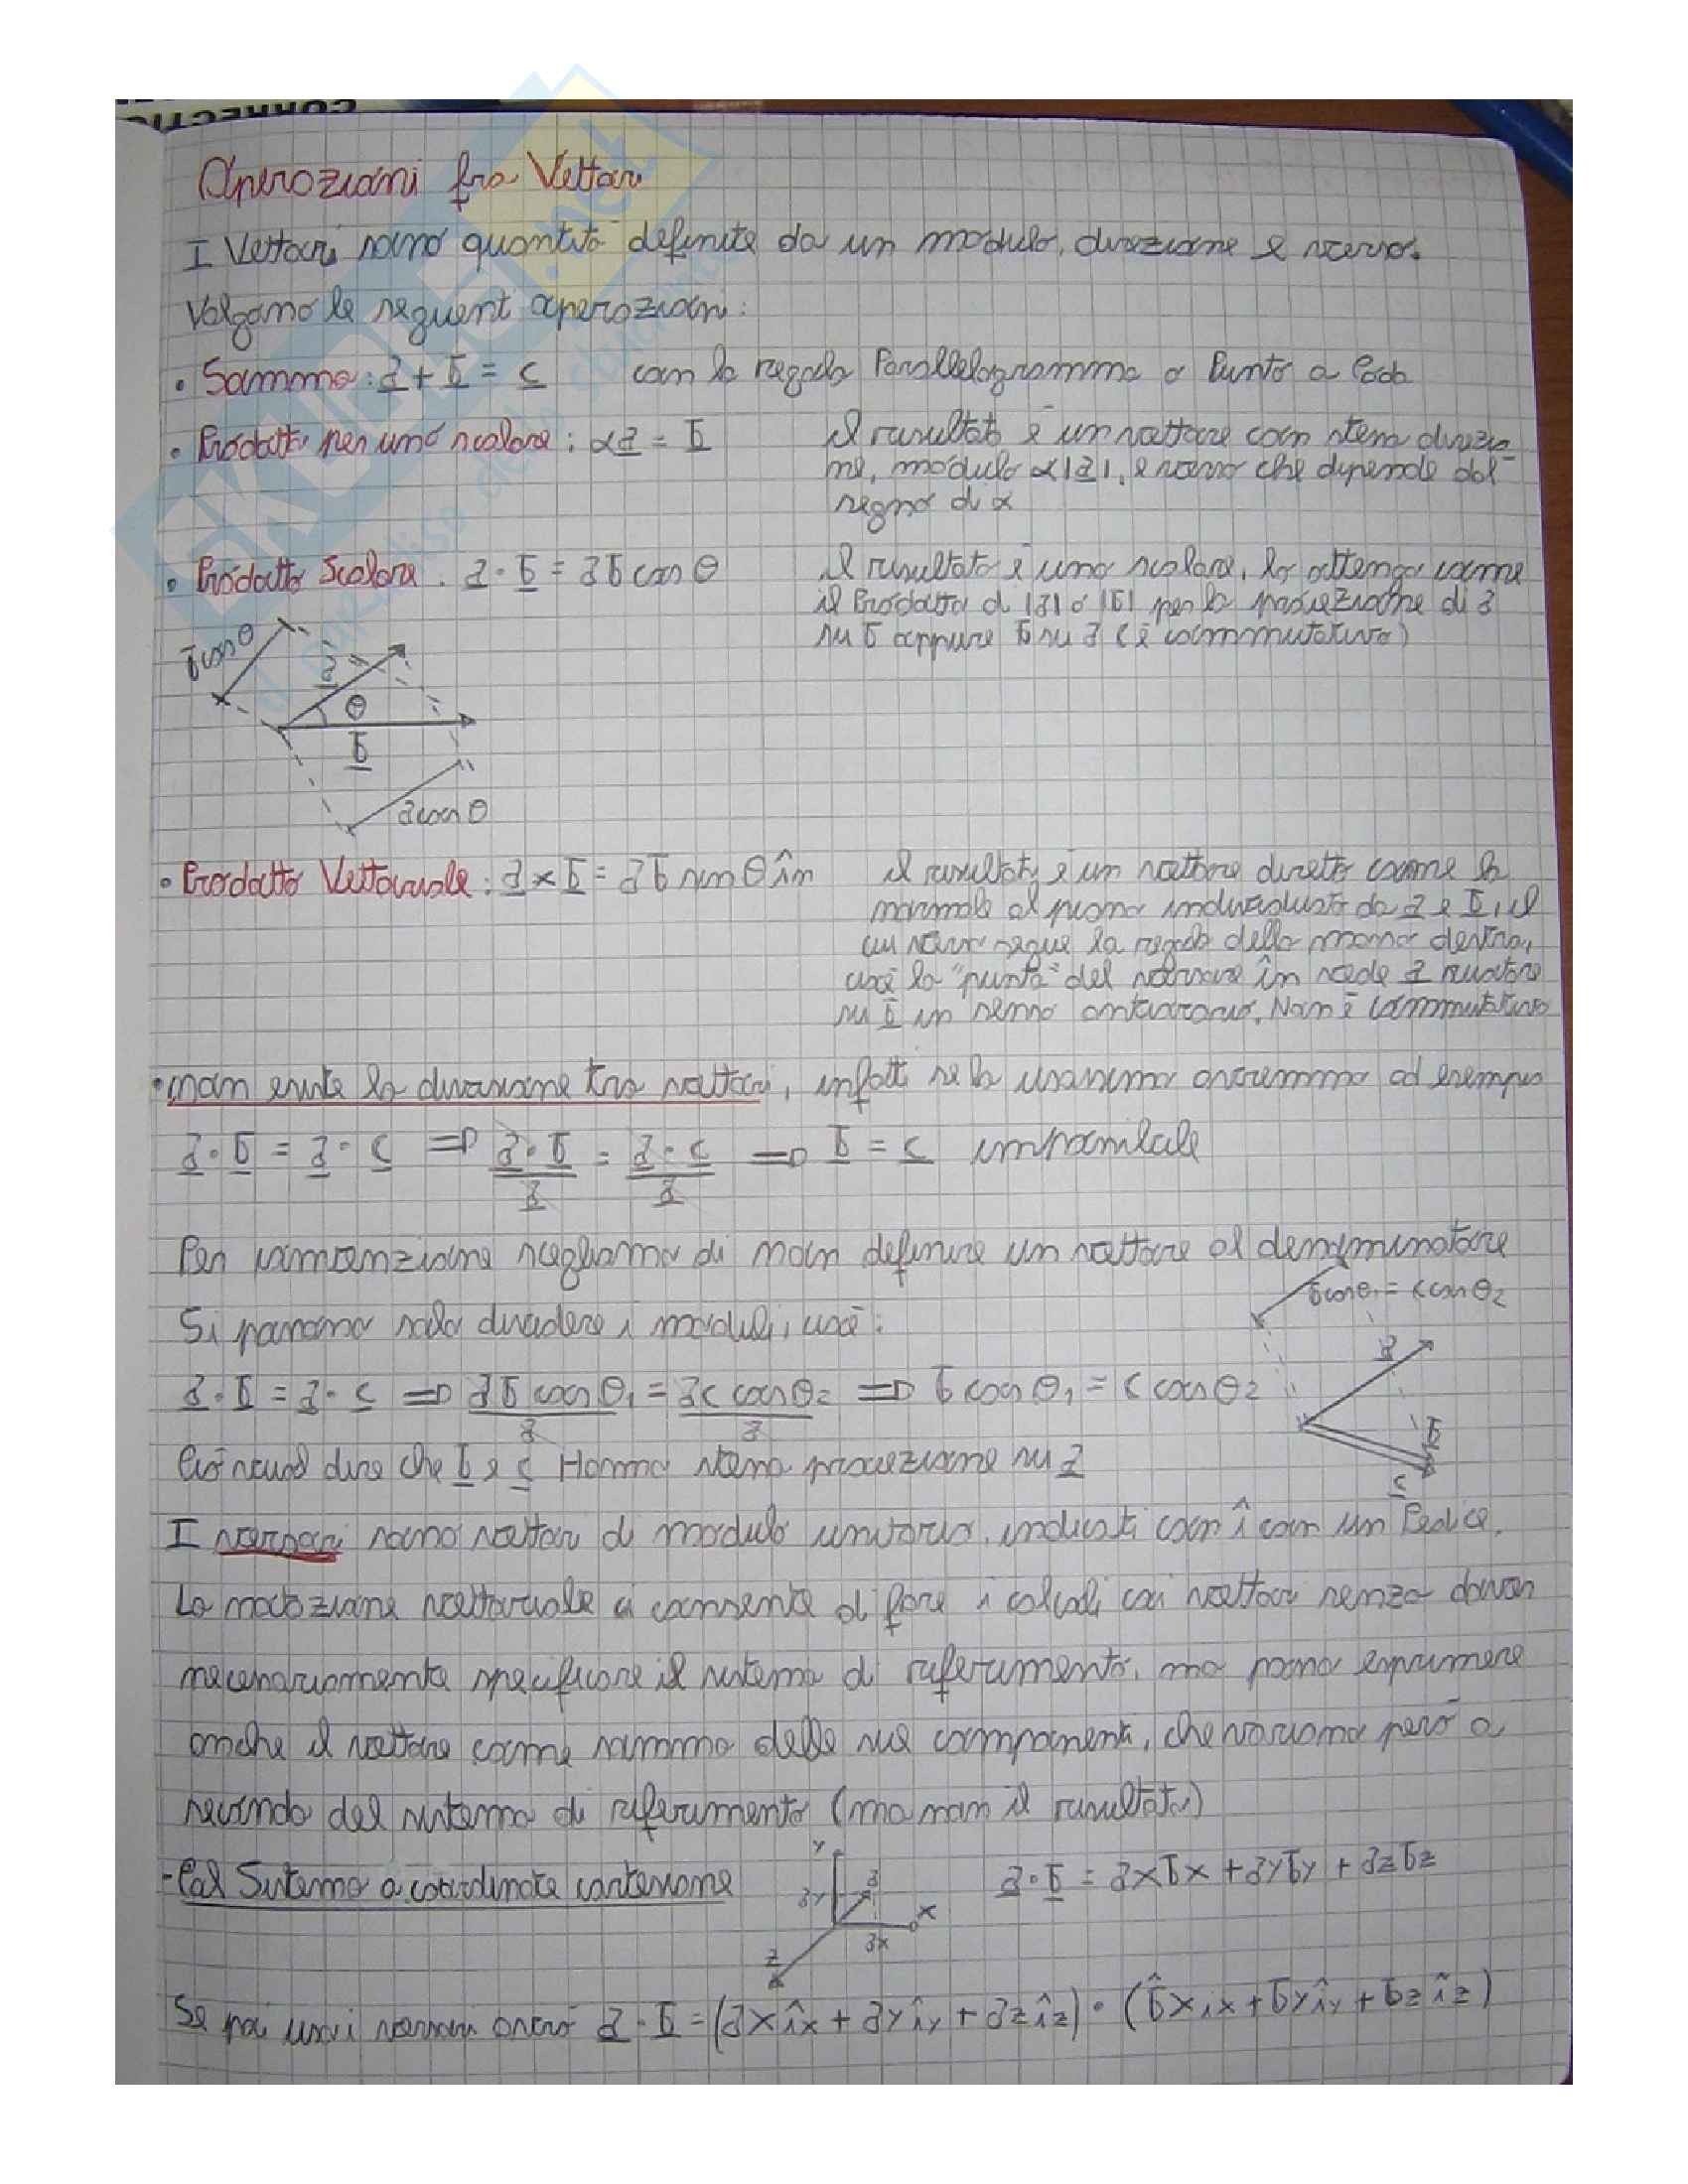 Operazioni fra Vettori
I Vettori sono quantità definite da un modulo, direzione e verso.
Valgono le seguenti operazioni:
• Somma: a + b = c con la regola Parallelogramma o Punto a Coda
• Prodotto per uno scalare: αa = b il risultato è un vettore con stessa direzio-
ne, modulo α|a|, e verso che dipende dal
segno di α
• Prodotto Scalare: a · b = ab cos θ il risultato è uno scalare, lo ottengo come
il Prodotto di |a| o |b| per la proiezione di a
su b oppure b su a (è commutativo)
b cos θ
a
θ
b
a cos θ
• Prodotto Vettoriale: a × b = ab sin θ în il risultato è un vettore diretto come la
normale al piano individuato da a e b, il
cui verso segue la regola della mano destra,
cioè la "punta" del versore în vede a ruotare
su b in senso antiorario. Non è commutativo
• non esiste la divisione tra vettori, infatti se la usassimo avremmo ad esempio
a · b = a · c ⇒ a · b / a = a · c / a ⇒ b = c impossibile
Per convenzione scegliamo di non definire un vettore al denominatore
Si possono solo dividere i moduli, cioè:
b cos θ1 = c cos θ2
a
b
c
a · b = a · c ⇒ ab cos θ1 / a = ac cos θ2 / a ⇒ b cos θ1 = c cos θ2
Ciò vuol dire che b e c Hanno stessa proiezione su a
I versori sono vettori di modulo unitario, indicati con î con un Pedice.
La notazione vettoriale ci consente di fare i calcoli coi vettori senza dover
necessariamente specificare il sistema di riferimento, ma posso esprimere
anche il vettore come somma delle sue componenti, che variano però a
seconda del sistema di riferimento (ma non il risultato)
- Col Sistema a coordinate cartesiane a · b = axbx + ayby + azbz
y
ay
a
x
ax
z
Se poi uso i versori avrò a · b = (ax îx + ay îy + az îz) · (bx îx + by îy + bz îz)